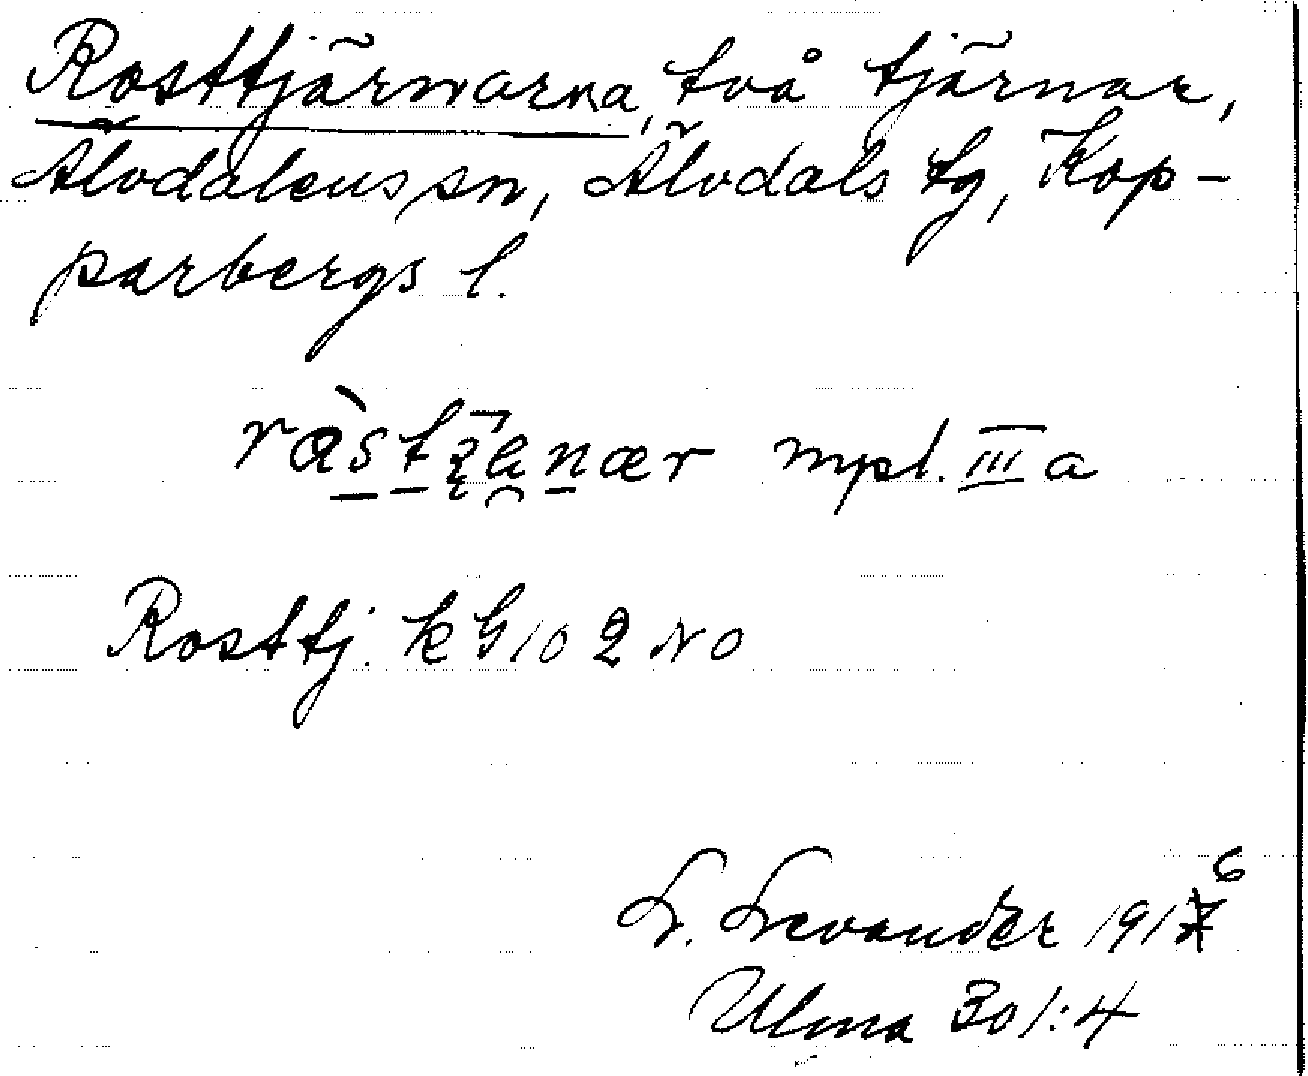 Rosttjärnarna, två tjärnar,
Älvdalens sn, Älvdals tg, Kop-
parbergs l.
mpl. III a
Rosttj. kG 10 2 NO
L. Levander 1916
Ulma 301:4